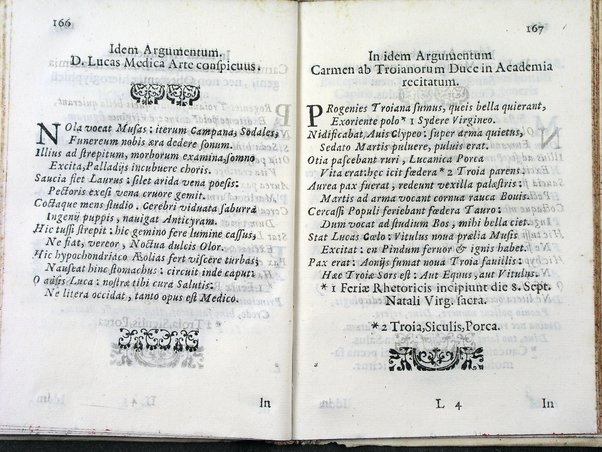 166
Idem Argumentum.
D. Lucas Medica Arte conspicuus.
NOla vocat Musas: iterum Campana, Sodales,
Funereum nobis æra dedere sonum.
Illius ad strepitum, morborum examina, somno
Excita, Palladijs incubuere choris.
Saucia siet Laurus: silet arida vena poesis:
Pectoris exesi vena cruore gemit.
Coctaque mens studio. Cerebri viduata saburra
Ingenij puppis, nauigat Anticyram.
Hic tussi strepit: hic gemino fere lumine cassus,
Ne fiat, vereor, Noctua dulcis Olor.
Hic hypochondriaco Æolias fert viscere turbas;
Nauseat hinc stomachus: circuit inde caput:
O adsis Luca: nostra tibi cura Salutis:
Ne litera occidat, tanto opus est Medico.
In
167
In idem Argumentum
Carmen ab Troianorum Duce in Academia
recitatum.
PRogenies Troiana sumus, queis bella quierant,
Exoriente polo * 1 Sydere Virgineo.
Nidificabat, Auis Clypeo: super arma quietus,
Sedato Martis puluere, puluis erat.
Otia pascebant ruri, Lucanica Porca
Vita erat: hęc icit fœdera * 2 Troia parens.
Aurea pax fuerat, redeunt vexilla palæstris:
Martis ad arma vocant cornua rauca Bouis.
Cercassi Populi feriebant fœdera Tauro:
Dum vocat ad studium Bos, mihi bella ciet.
Stat Lucas Cœlo: Vitulus noua prælia Musis
Excitat: en Pindum ferro & ignis habet.
Pax erat: Aonijs fumat noua Troia fauillis:
Hæ Troiæ Sors est: Aut Equus, aut Vitulus.
* 1 Feriæ Rhetoricis incipiunt die 8. Sept.
Natali Virg. sacra.
* 2 Troia, Siculis, Porca.
L 4
In